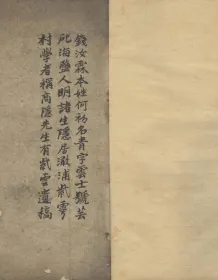 錢汝霖本姓何初名青字雲士號芸
𦒿海鹽人明諸生隱居澉浦紫雲
村學者稱商隱先生有紫雲遺稿